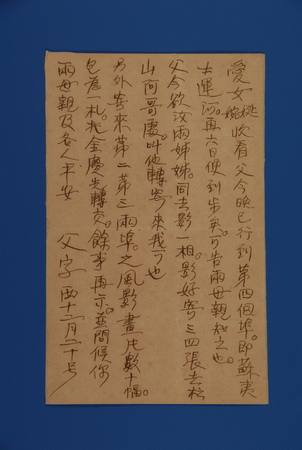 愛女婉桃收看父今晚已行到第四個埠。即蘇夷
士運河。再六日便到步矣。可告兩母親知之也。
父今欲汝兩姊姊。同去影一相。影好寄三四張去松
山阿哥處。叫他轉寄來我可也
另外寄來第二第三兩埠。之風影畫片数十幅。
包為一札。托金慶先轉交。餘事再示。並問候你
兩母親及各人平安
父字 西十二月二十号